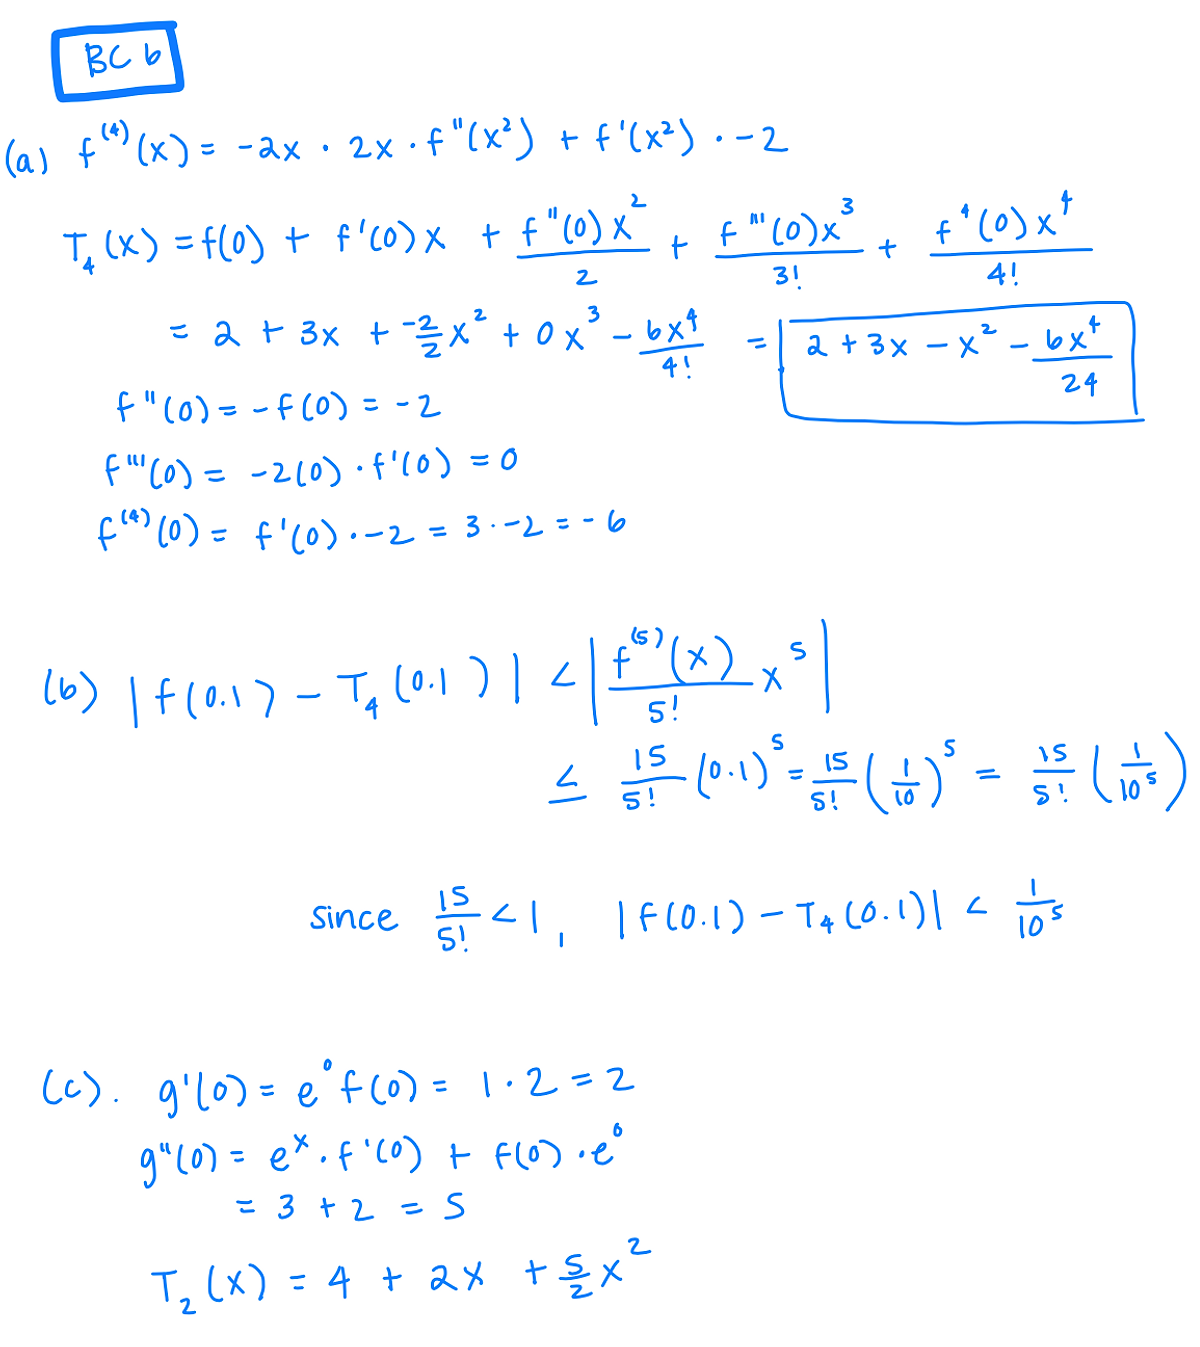 BC 6
(a) f^(4)(x) = -2x · 2x · f''(x²) + f'(x²) · -2
T₄(x) = f(0) + f'(0)x + f''(0)x²/2 + f'''(0)x³/3! + f⁴(0)x⁴/4!
= 2 + 3x + -2/2 x² + 0x³ - 6x⁴/4! = 2 + 3x - x² - 6x⁴/24
f''(0) = -f(0) = -2
f'''(0) = -2(0) · f'(0) = 0
f^(4)(0) = f'(0) · -2 = 3 · -2 = -6
(b) |f(0.1) - T₄(0.1)| < |f^(5)(x)/5! x⁵|
≤ 15/5! (0.1)⁵ = 15/5! (1/10)⁵ = 15/5! (1/10⁵)
since 15/5! < 1, |f(0.1) - T₄(0.1)| < 1/10⁵
(c). g'(0) = e⁰f(0) = 1 · 2 = 2
g''(0) = eˣ · f'(0) + f(0) · e⁰
= 3 + 2 = 5
T₂(x) = 4 + 2x + 5/2 x²